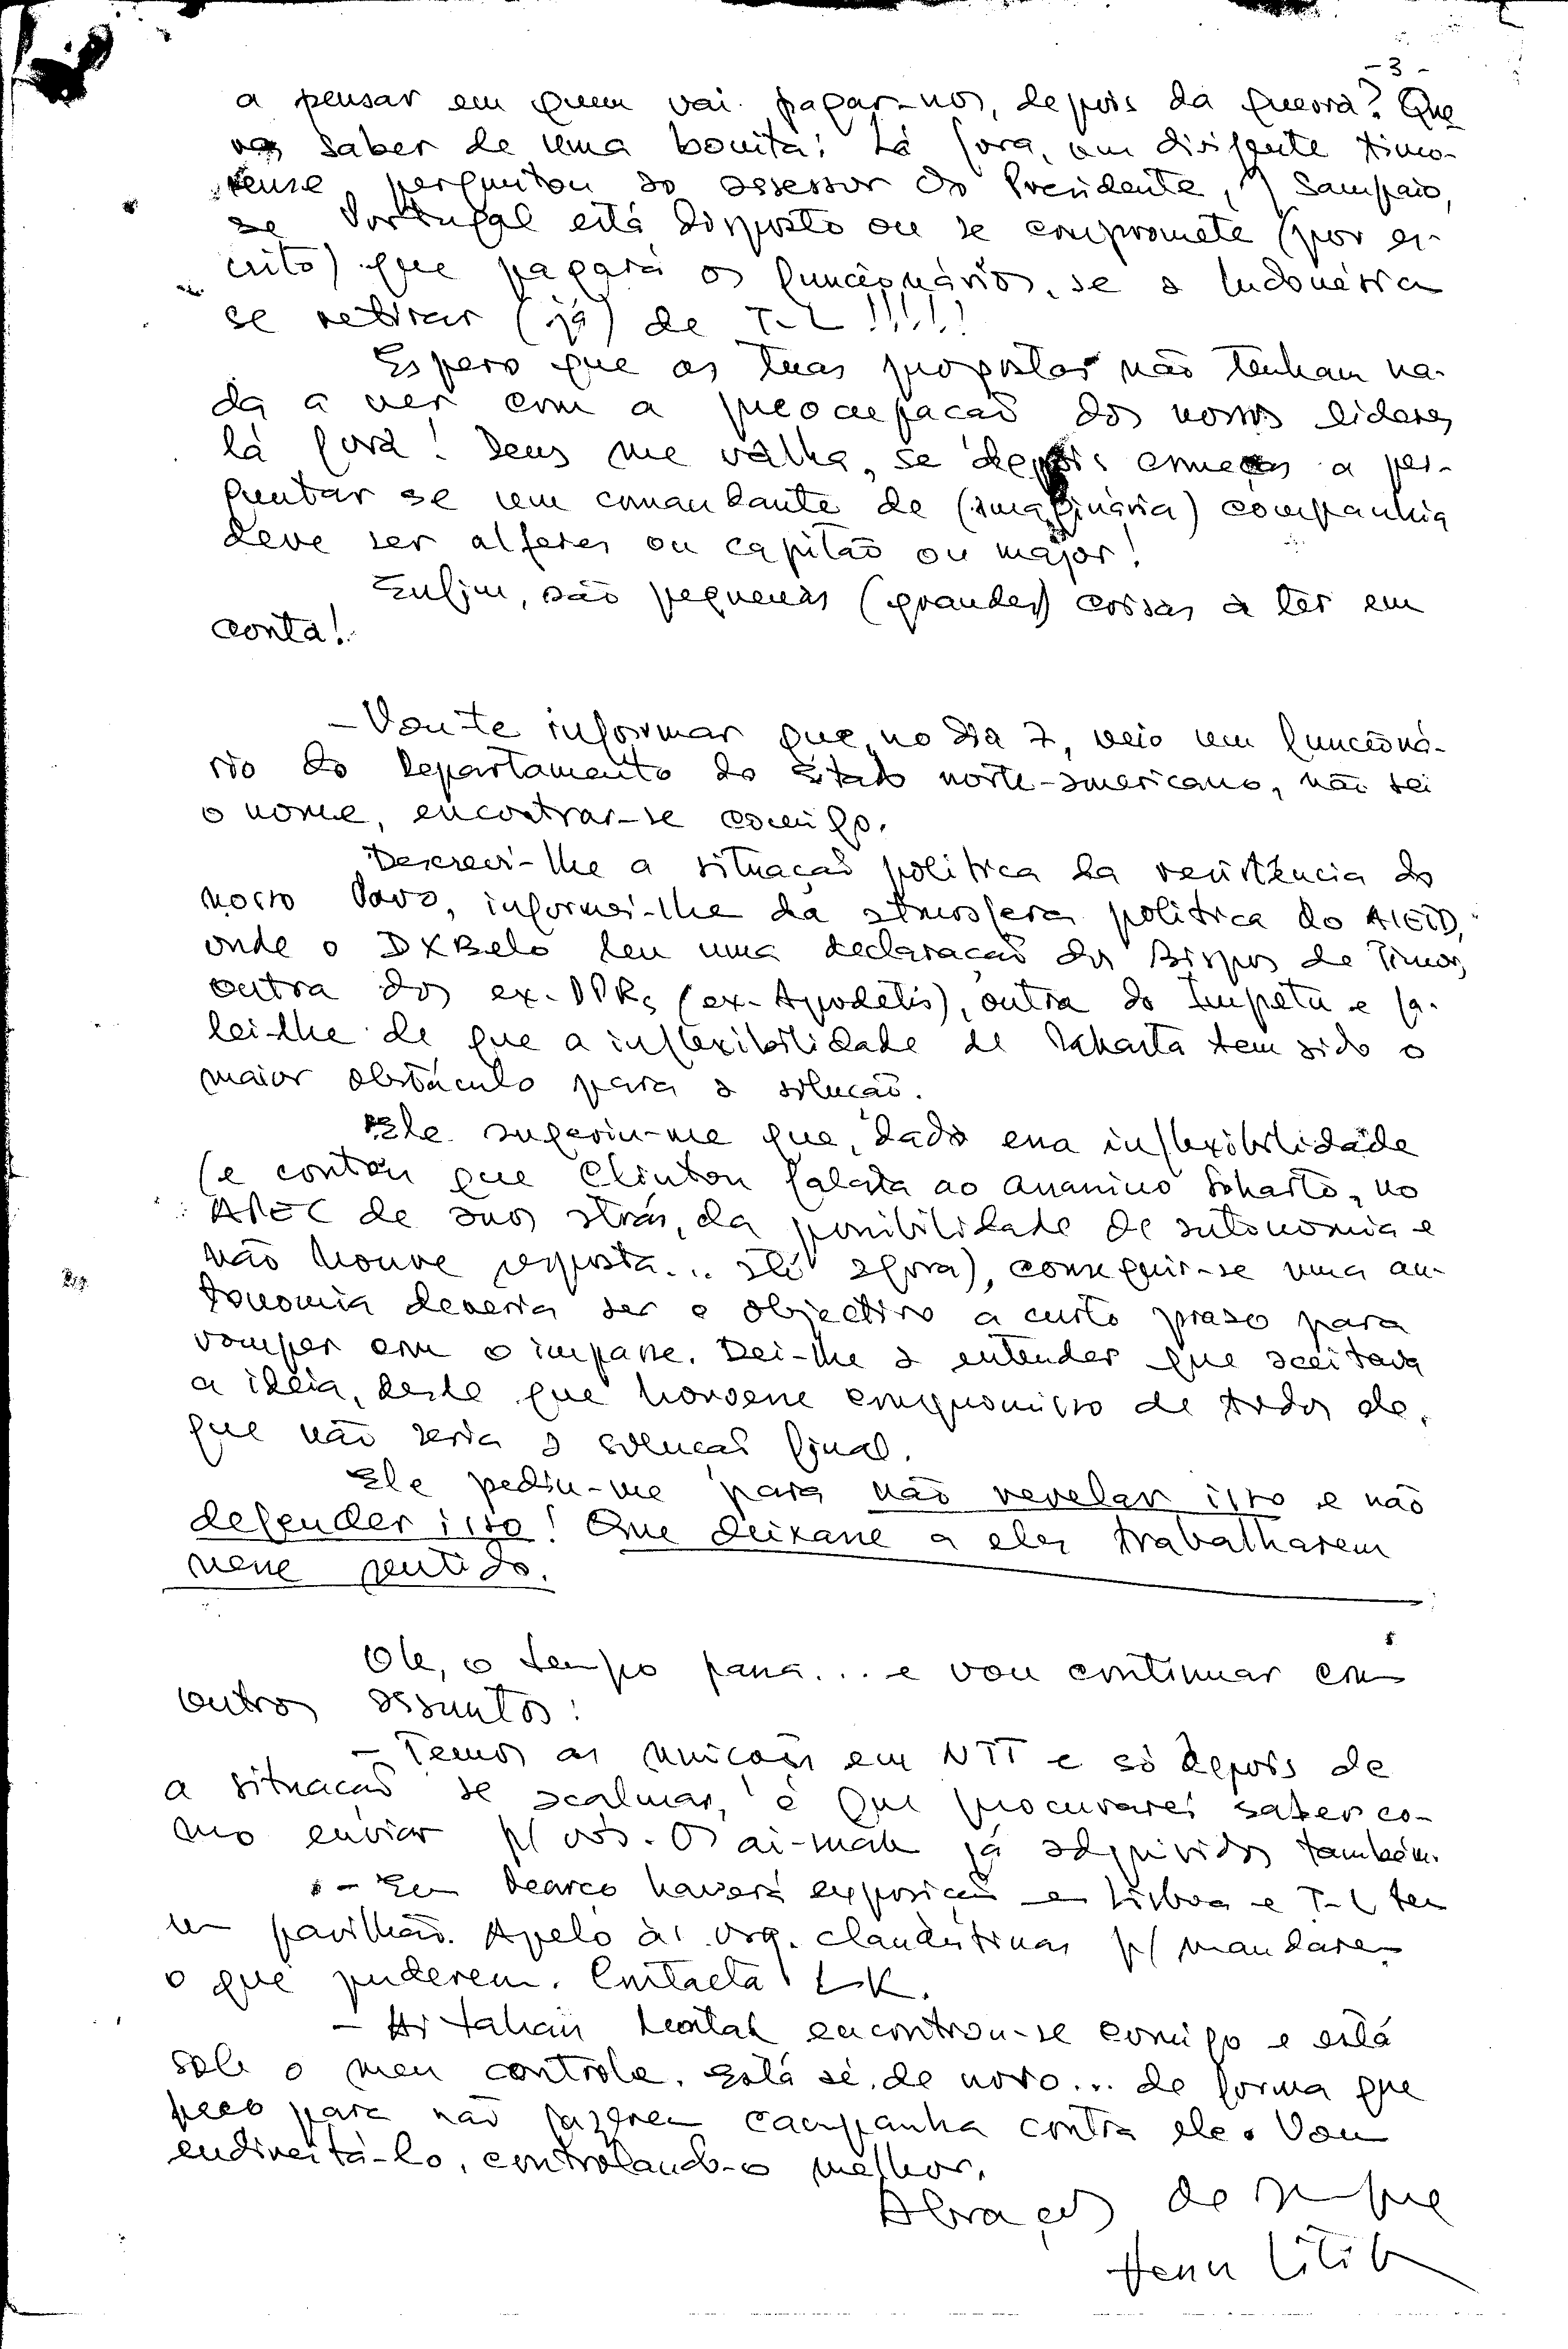 - 3 -
a pensar em quem vai pagar-nos, depois da guerra? Que
res saber de uma bonita: Lá fora, um dirigente timo-
rense perguntou ao assessor do Presidente, J Sampaio,
se Portugal está disposto ou se compromete (por es-
crito) que pagará os funcionários, se a Indonésia
se retirar (já) de T-L !!!!!
Espero que as tuas propostas não tenham na-
da a ver com a preocupação dos nossos líderes
lá fora! Deus me valha, se depois começas a per-
guntar se um comandante de (imaginária) companhia
deve ser alferes ou capitão ou major!
Enfim, são pequenas (grandes) coisas a ter em
conta!
- Vou-te informar que, no dia 7, veio um funcioná-
rio do Departamento do Estado norte-americano, não sei
o nome, encontrar-se comigo.
Descrevi-lhe a situação política da resistência do
nosso Povo, informei-lhe da atmosfera política do AIETD,
onde o DXBelo leu uma declaração dos Bispos de Timor,
outra dos ex-DPRs (ex-Apodetis), outra do Impetu e fa-
lei-lhe de que a inflexibilidade de Jakarta tem sido o
maior obstáculo para a solução.
Ele sugeriu-me que, dado essa inflexibilidade
(e contou que Clinton falara ao assassino Soharto, no
APEC de anos atrás, da possibilidade de autonomia e
não houve resposta... até agora), conseguir-se uma au-
tonomia deveria ser o objectivo a curto prazo para
romper com o impasse. Dei-lhe a entender que aceitava
a ideia, desde que houvesse compromisso de todos de
que não seria a solução final.
Ele pediu-me para não revelar isso e não
defender isso! Que deixasse a eles trabalharem
nesse sentido.
Ok, o tempo passa... e vou continuar com
outros assuntos:
- Temos as munições em NTT e só depois de
a situação se acalmar, é que procurarei saber co-
mo enviar p/ vós. Os ai-moruk já adquiridos também.
- Em Março haverá exposição em Lisboa e T-L tem
um pavilhão. Apelo às org. clandestinas p/ mandarem
o que puderem. Contacta LK.
- Ai tahan Matak encontrou-se comigo e está
sob o meu controle. Está só, de novo... de forma que
peço para não fazerem campanha contra ele. Vou
endireitá-lo, controlando-o melhor.
Abraços de sempre